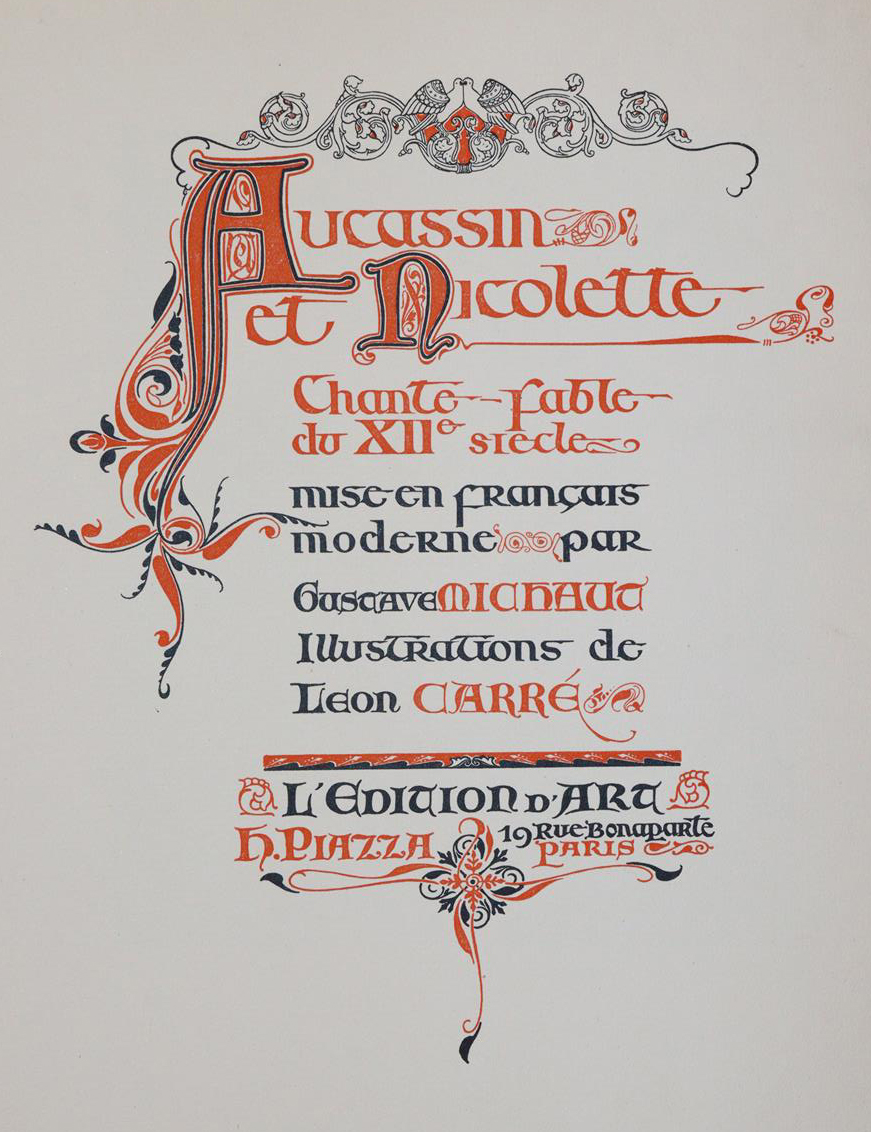 Aucassin
et Nicolette
Chante-fable
du XIIe siècle
mise en français
moderne par
Gustave MICHAUT
Illustrations de
Leon CARRÉ
L'EDITION D'ART
H. PIAZZA 19 Rue Bonaparte
PARIS